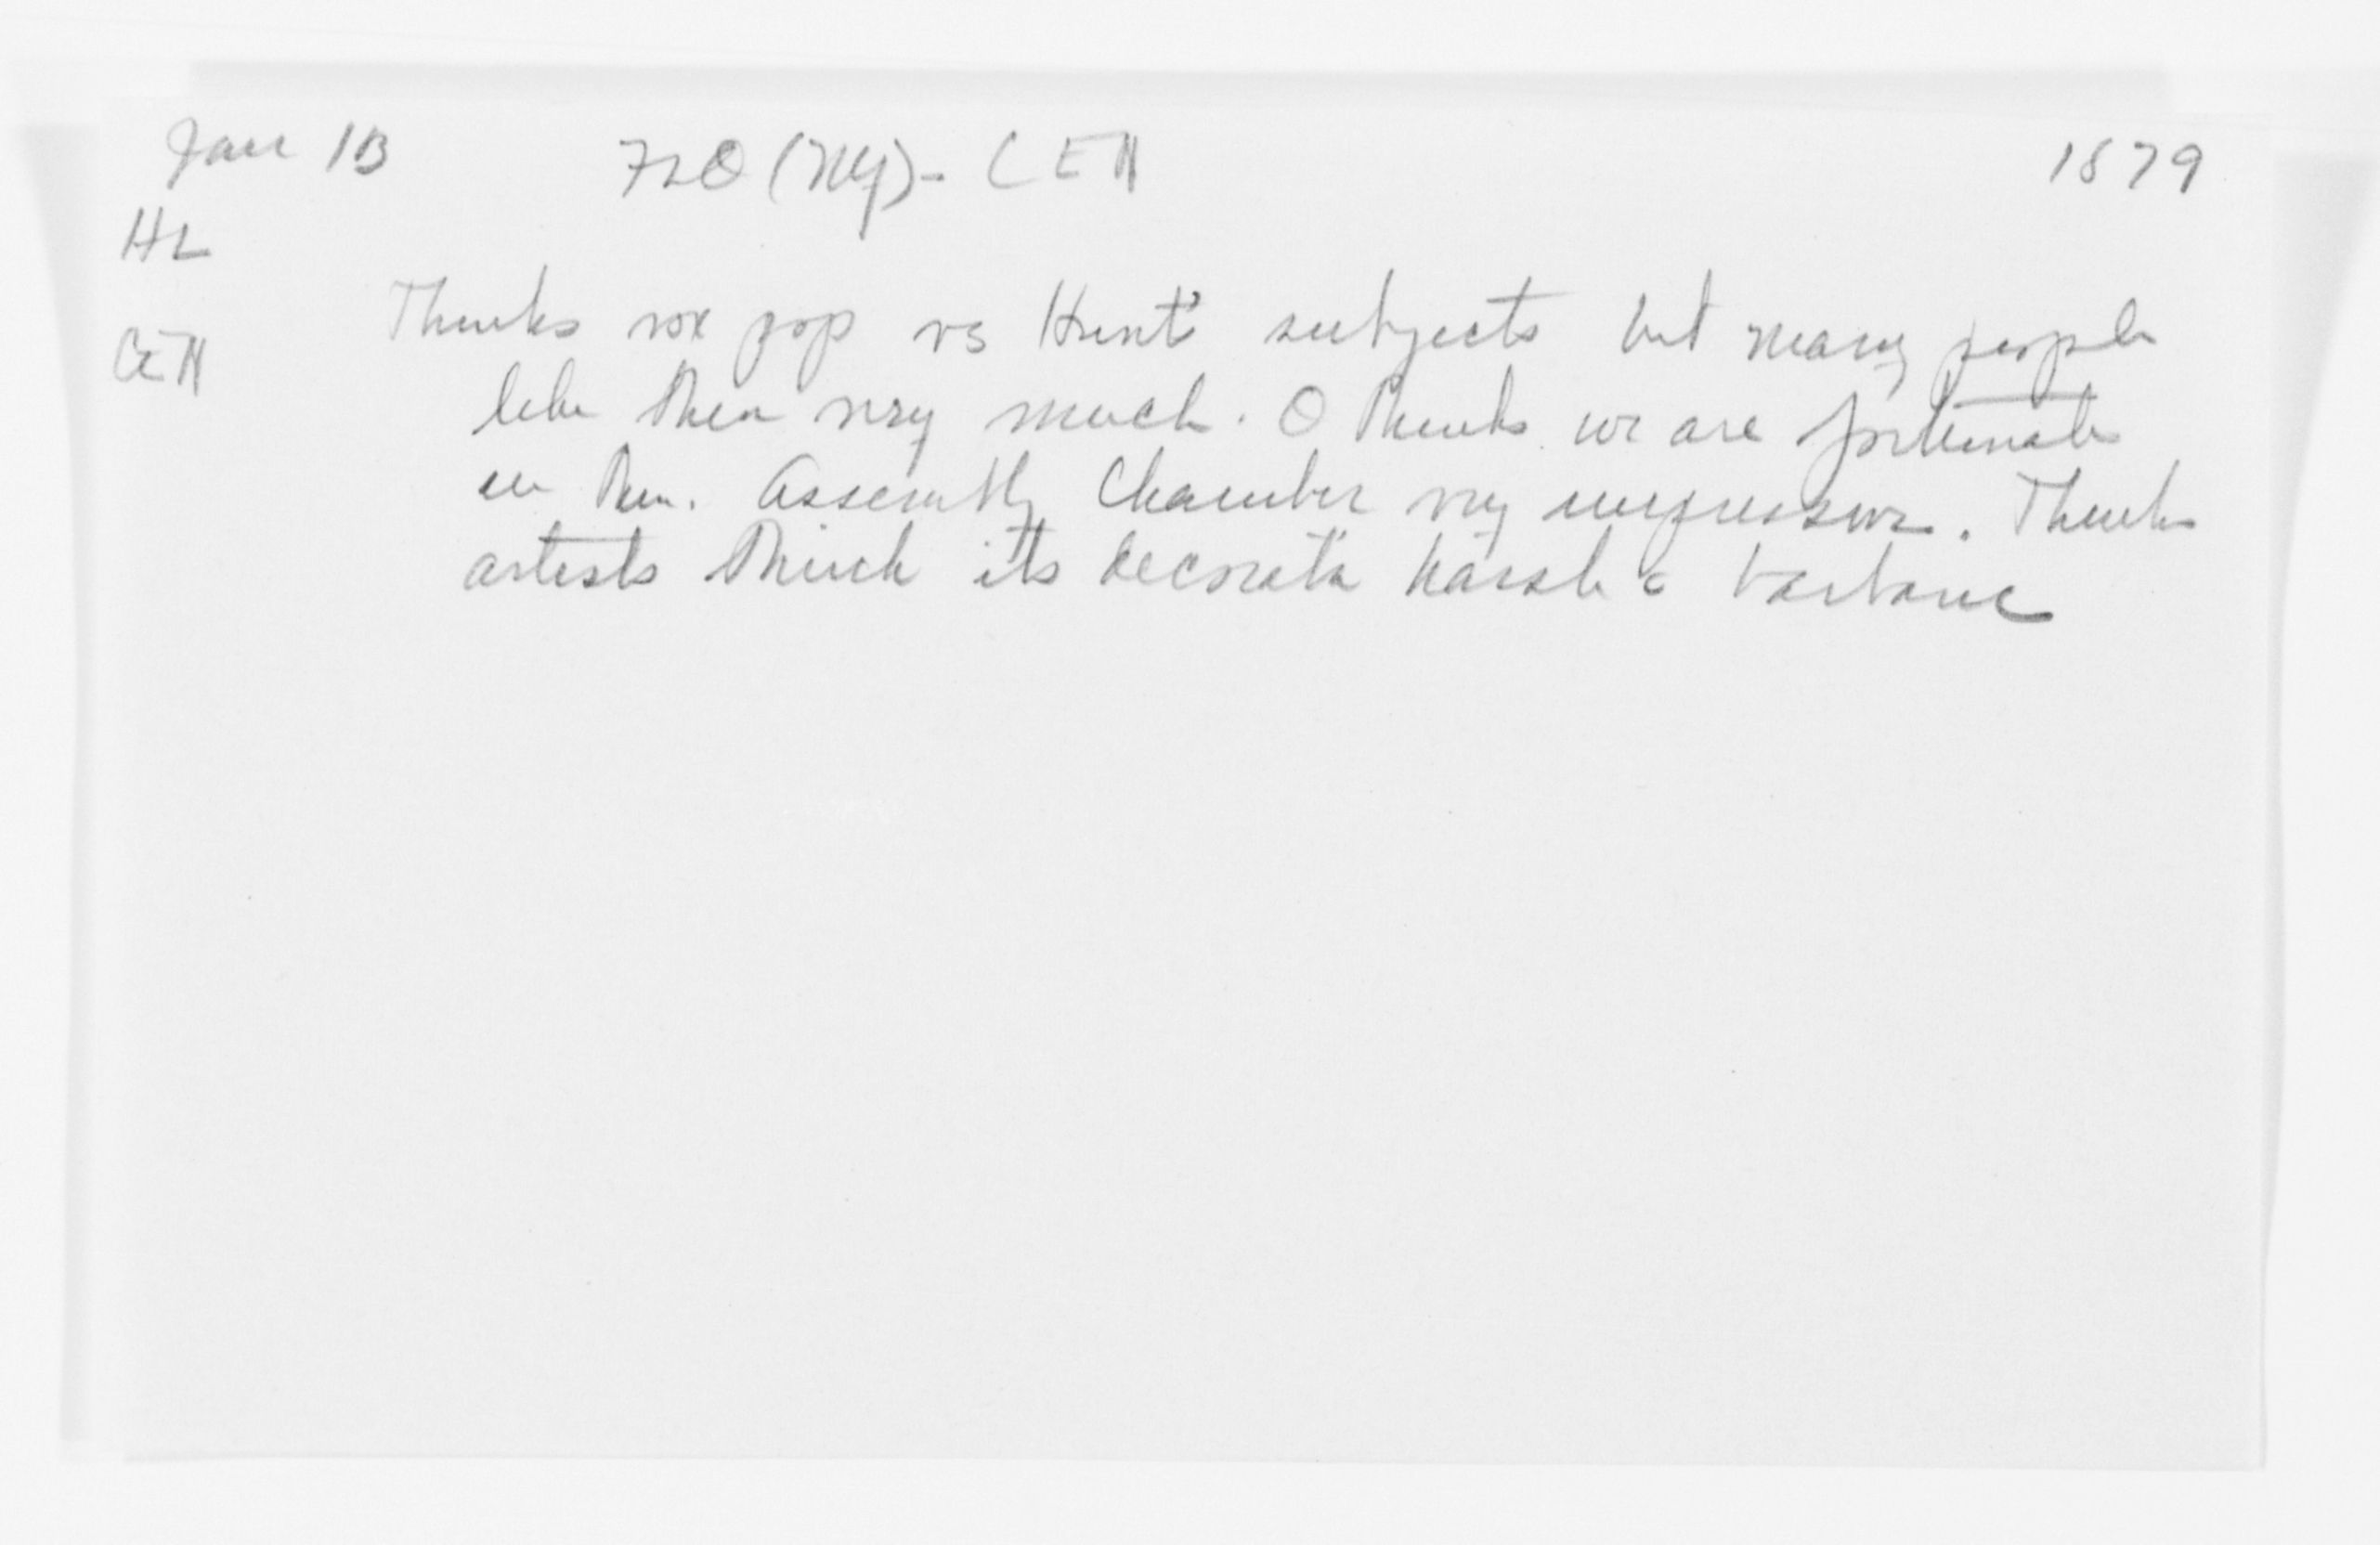 Jan 13 FLO (NY) - CEN 1879
HL
CEN
Thinks vox pop vs Hunt's subjects but many people
like them very much. O thinks we are fortunate
in them. Assembly Chamber very impressive. Thinks
artists think its decorat'n harsh & barbaric